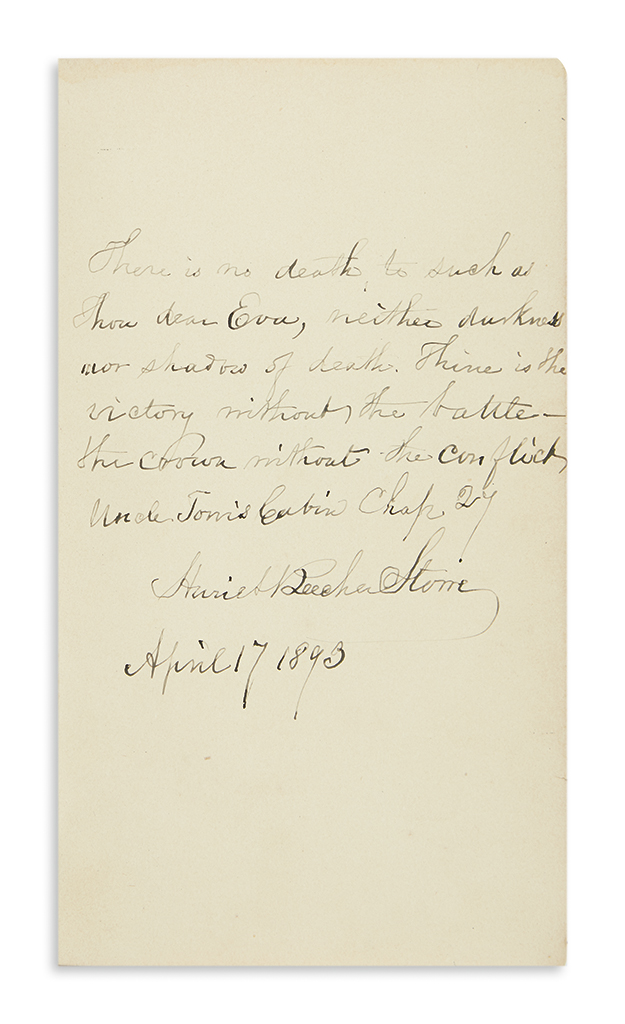 There is no death to such as
thou dear Eva, neither darkness
nor shadow of death. Thine is the
victory without the battle—
the crown without the conflict,
Uncle Tom's Cabin Chap. 27
Harriet Beecher Stowe
April 17 1893